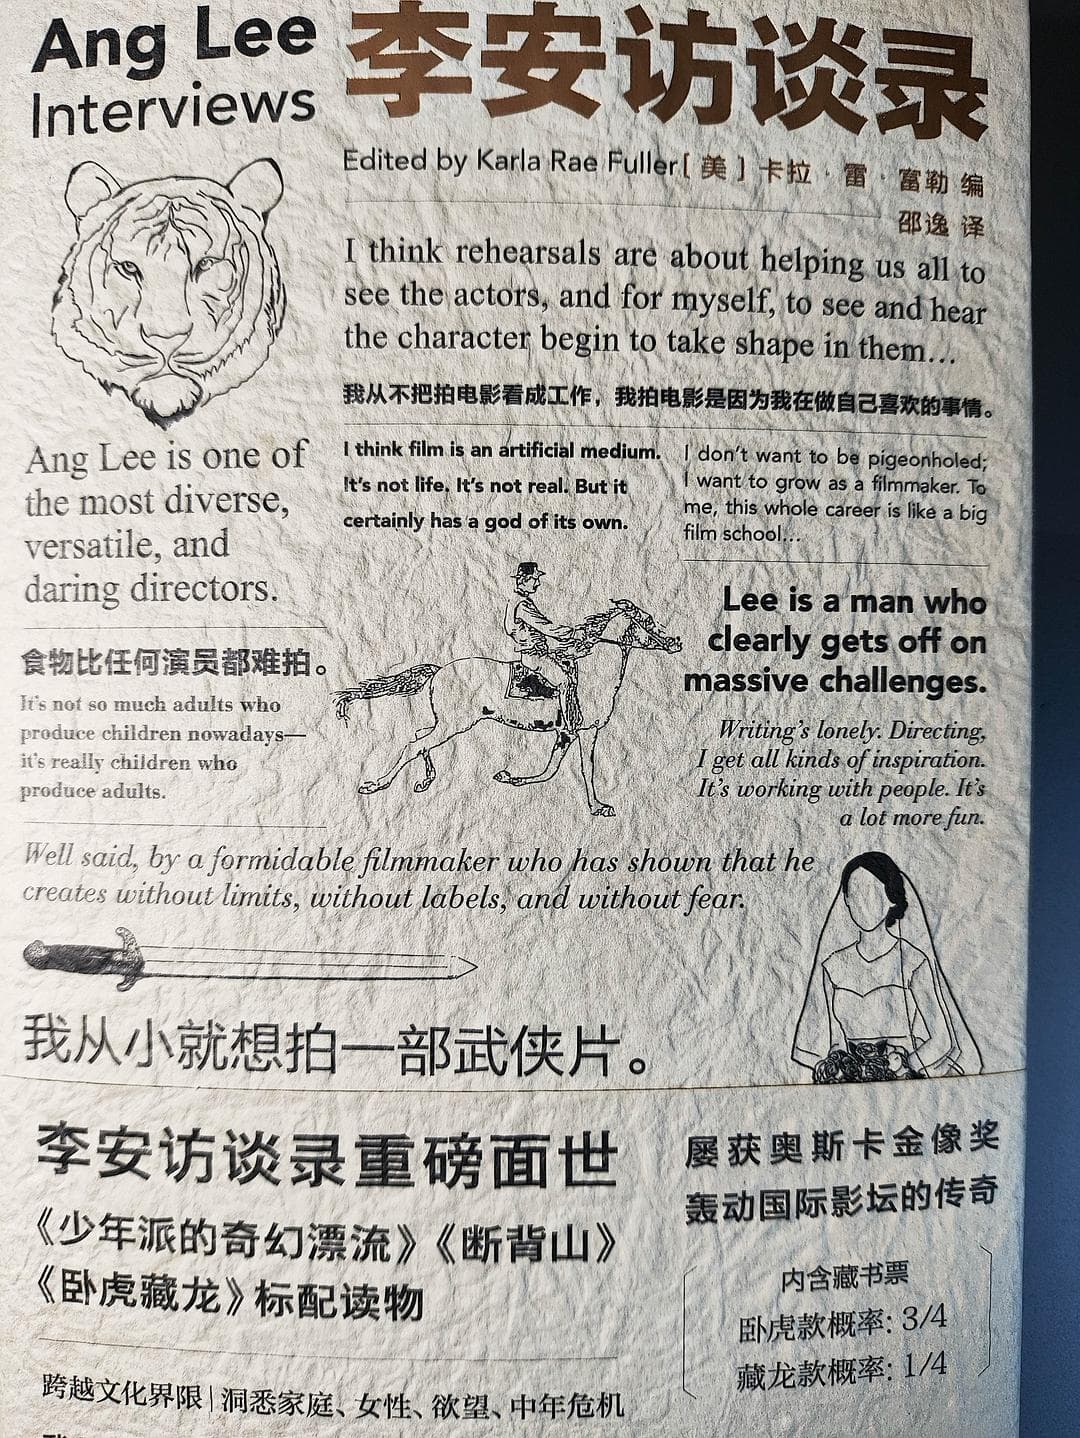 Ang Lee
Interviews
李安访谈录
Edited by Karla Rae Fuller [ 美 ] 卡拉 · 雷 · 富勒 编
邵逸 译
I think rehearsals are about helping us all to
see the actors, and for myself, to see and hear
the character begin to take shape in them…
我从不把拍电影看成工作，我拍电影是因为我在做自己喜欢的事情。
Ang Lee is one of
the most diverse,
versatile, and
daring directors.
I think film is an artificial medium.
It's not life. It's not real. But it
certainly has a god of its own.
I don't want to be pigeonholed;
I want to grow as a filmmaker. To
me, this whole career is like a big
film school…
Lee is a man who
clearly gets off on
massive challenges.
食物比任何演员都难拍。
It's not so much adults who
produce children nowadays—
it's really children who
produce adults.
Writing's lonely. Directing,
I get all kinds of inspiration.
It's working with people. It's
a lot more fun.
Well said, by a formidable filmmaker who has shown that he
creates without limits, without labels, and without fear.
我从小就想拍一部武侠片。
李安访谈录重磅面世
《少年派的奇幻漂流》《断背山》
《卧虎藏龙》标配读物
屡获奥斯卡金像奖
轰动国际影坛的传奇
内含藏书票
卧虎款概率: 3/4
藏龙款概率: 1/4
跨越文化界限 | 洞悉家庭、女性、欲望、中年危机